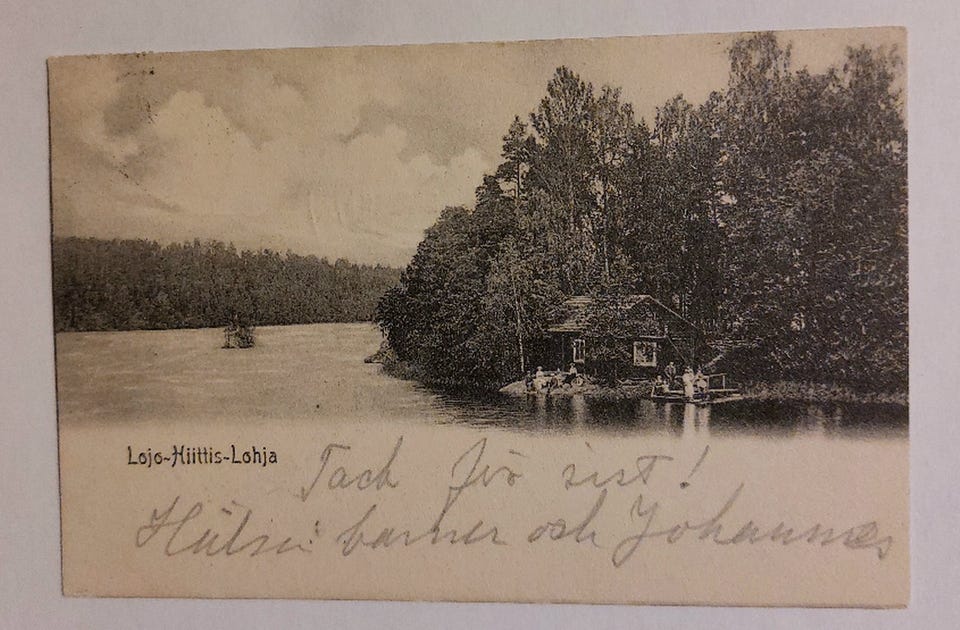 Lojo-Hiittis-Lohja
Tack för sist!
Hälsa barnen och Johannes